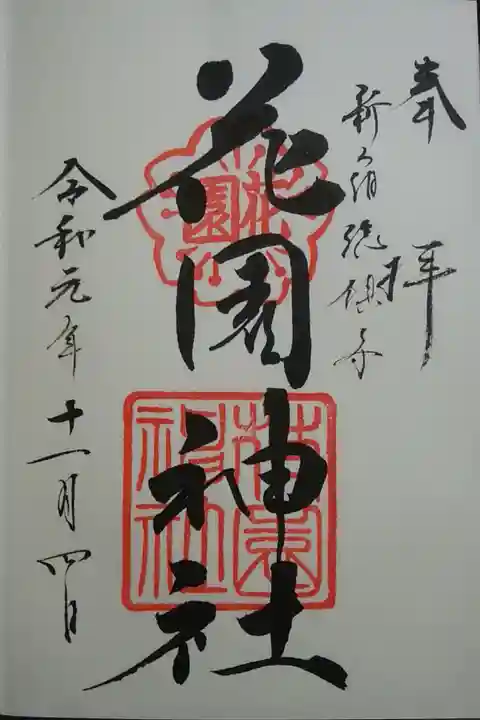 奉拝
新宿総鎮守
花園神社
花園
花園神社
令和元年十一月四日